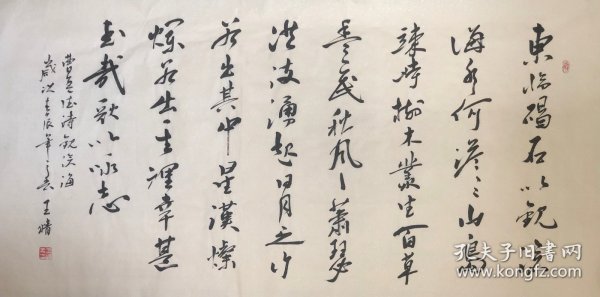 東臨碣石以觀滄
海水何澹〻山島
竦峙樹木叢生百草
豐茂秋風蕭瑟
洪波湧起日月之行
若出其中星漢燦
爛若出其裡幸甚
至哉歌以詠志
曹孟德詩觀滄海
歲次壬辰年 王晴
孔夫子旧书网
www.kongfz.com